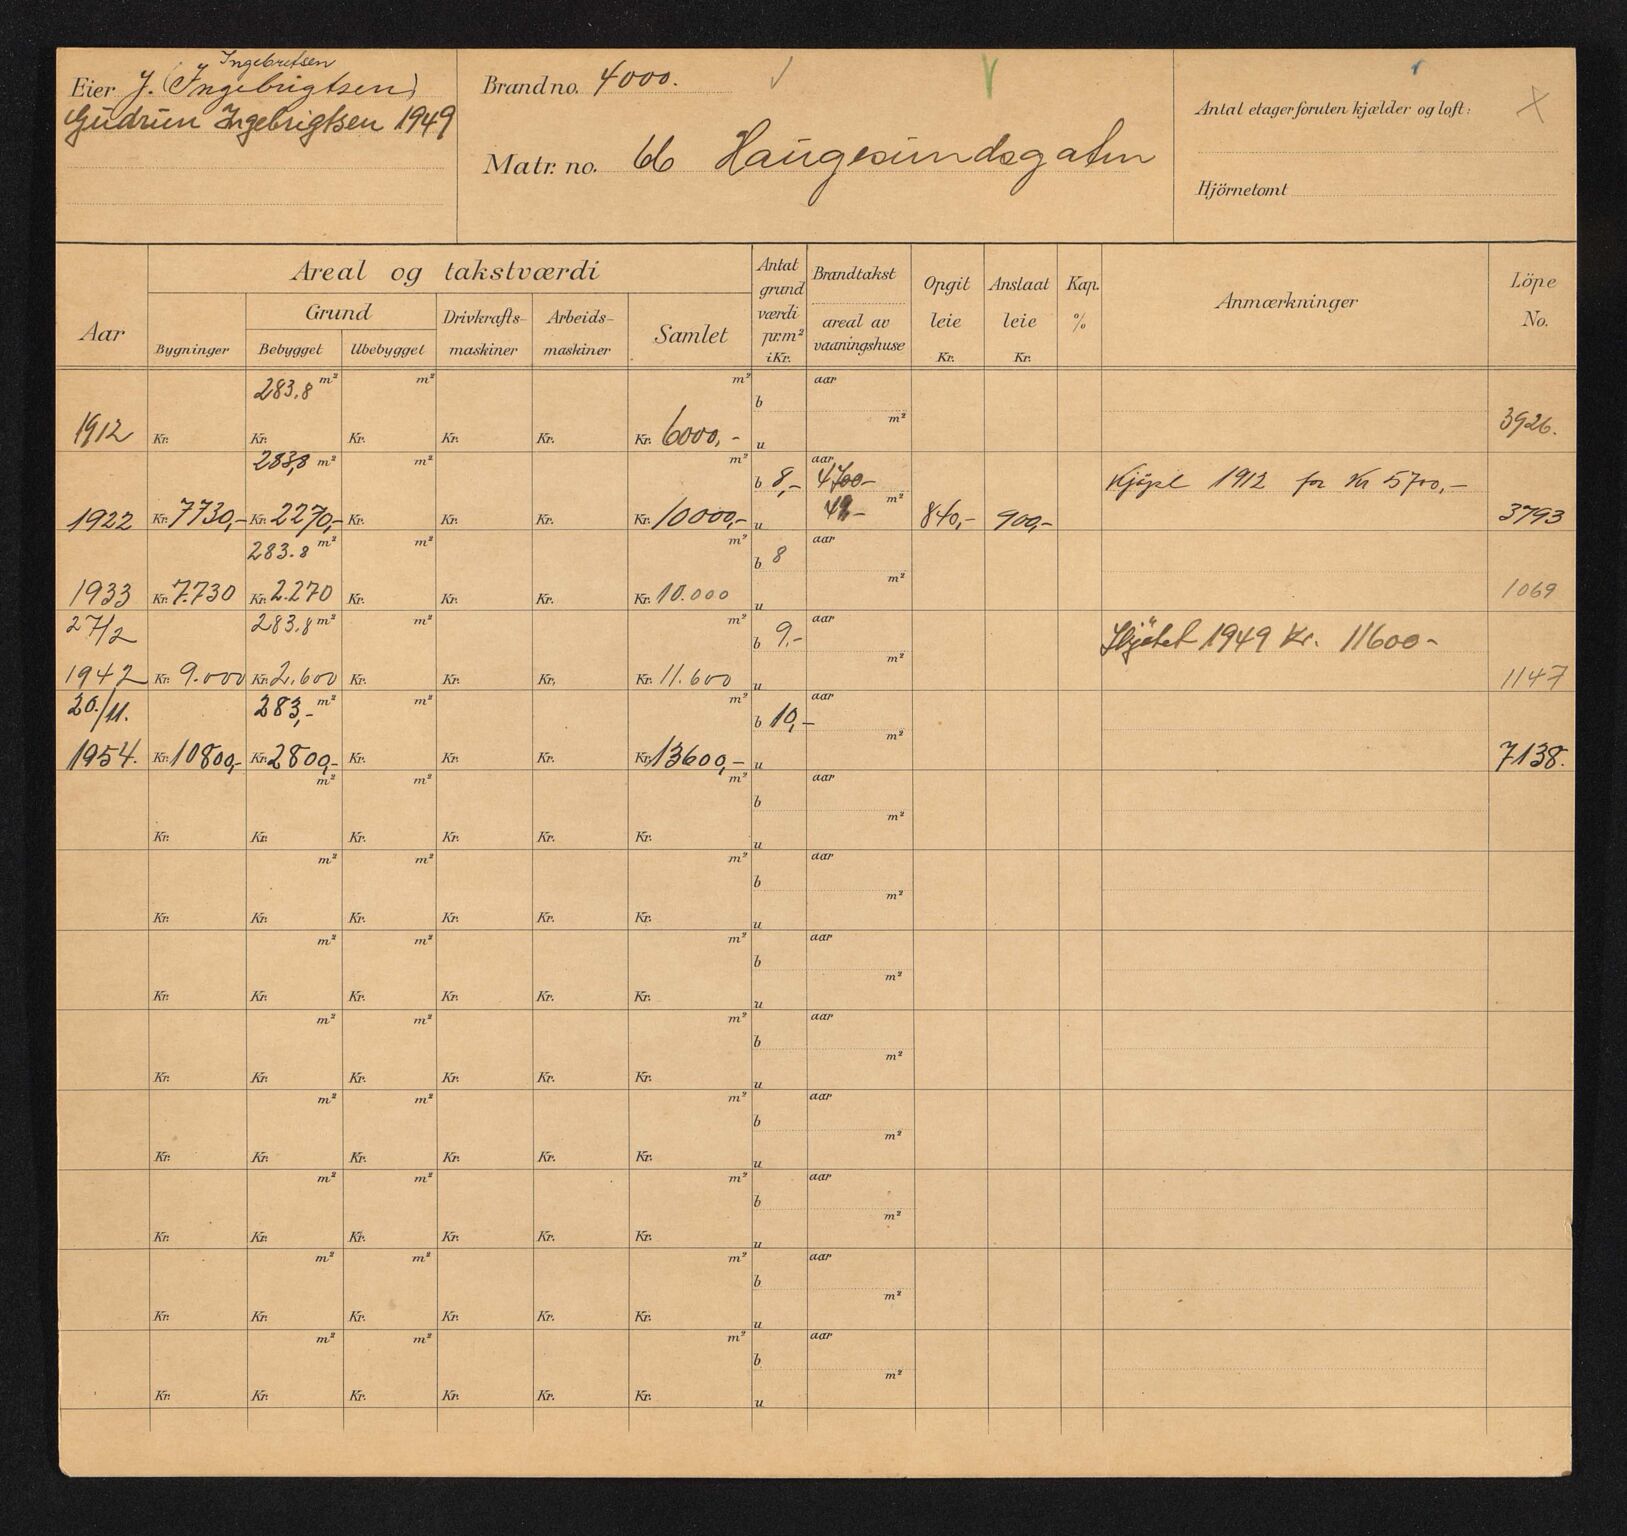 Ingebretsen
Eier J. (Ingebrigtsen)
Gudrun Ingebrigtsen 1949
Brand no. 4000.
Matr. no. 66 Haugesundsgaten
Antal etager foruten kjælder og loft:
Hjörnetomt
Aar
Areal og takstværdi
Bygninger
Grund
Bebygget Ubebygget
Drivkrafts-
maskiner
Arbeids-
maskiner
Samlet
Antat
grund
værdi
pr. m²
i Kr.
Brandtakst
areal av
vaaningshuse
Opgit
leie
Kr.
Anslaat
leie
Kr.
Kap.
%
Anmærkninger
Löpe
No.
283.8 m² m² m² aar
b
m²
1912 Kr. Kr. Kr. Kr. Kr. Kr. 6000,- u 3926.
283,8 m² m² m² aar
b 8,- 4700- Kjöpt 1912 for Kr 5700,-
m²
1922 Kr. 7730,- Kr. 2270,- Kr. Kr. Kr. Kr. 10000,- u 840,- 900,- 3793
283.8 m² m² m² aar
b 8
m²
1933 Kr. 7.730 Kr. 2.270 Kr. Kr. Kr. Kr. 10.000 u 1069
27/2 283.8 m² m² m² aar
b 9,- Skjötet 1949 Kr. 11600-
m²
1942 Kr. 9.000 Kr. 2.600 Kr. Kr. Kr. Kr. 11.600 u 1147
20./11. 283,- m² m² m² aar
b 10,-
m²
1954. Kr. 10800,- Kr. 2800,- Kr. Kr. Kr. Kr. 13600,- u 7138.
m² m² m² aar
b
m²
Kr. Kr. Kr. Kr. Kr. Kr. u
m² m² m² aar
b
m²
Kr. Kr. Kr. Kr. Kr. Kr. u
m² m² m² aar
b
m²
Kr. Kr. Kr. Kr. Kr. Kr. u
m² m² m² aar
b
m²
Kr. Kr. Kr. Kr. Kr. Kr. u
m² m² m² aar
b
m²
Kr. Kr. Kr. Kr. Kr. Kr. u
m² m² m² aar
b
m²
Kr. Kr. Kr. Kr. Kr. Kr. u
m² m² m² aar
b
m²
Kr. Kr. Kr. Kr. Kr. Kr. u
m² m² m² aar
b
m²
Kr. Kr. Kr. Kr. Kr. Kr. u